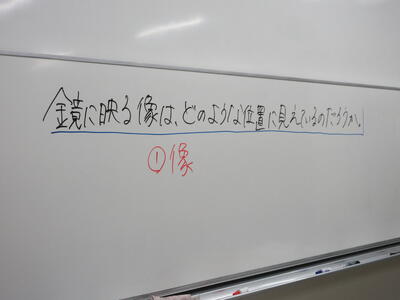 鏡に映る像は、どのような位置に見えているのだろうか。
①像